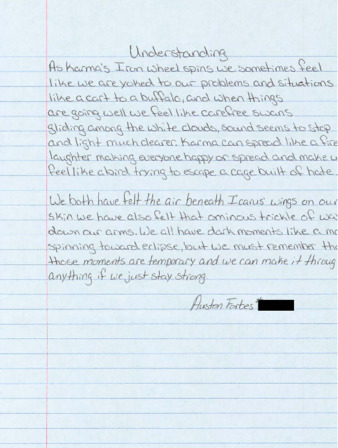 Understanding
As Karma's Iron wheel spins we sometimes feel
like we are yoked to our problems and situations
like a cart to a buffalo, and when things
are going well we feel like carefree swans
gliding among the white clouds, sound seems to stop
and light much clearer. Karma can spread like a fire
laughter making everyone happy or spread and make u
feel like a bird trying to escape a cage built of hate.
We both have felt the air beneath Icarus wings on our
skin we have also felt that ominous trickle of wa
down our arms. We all have dark moments like a mo
spinning toward eclipse, but we must remember tha
those moments are temporary and we can make it throug
anything if we just stay strong.
Auston Forbes #